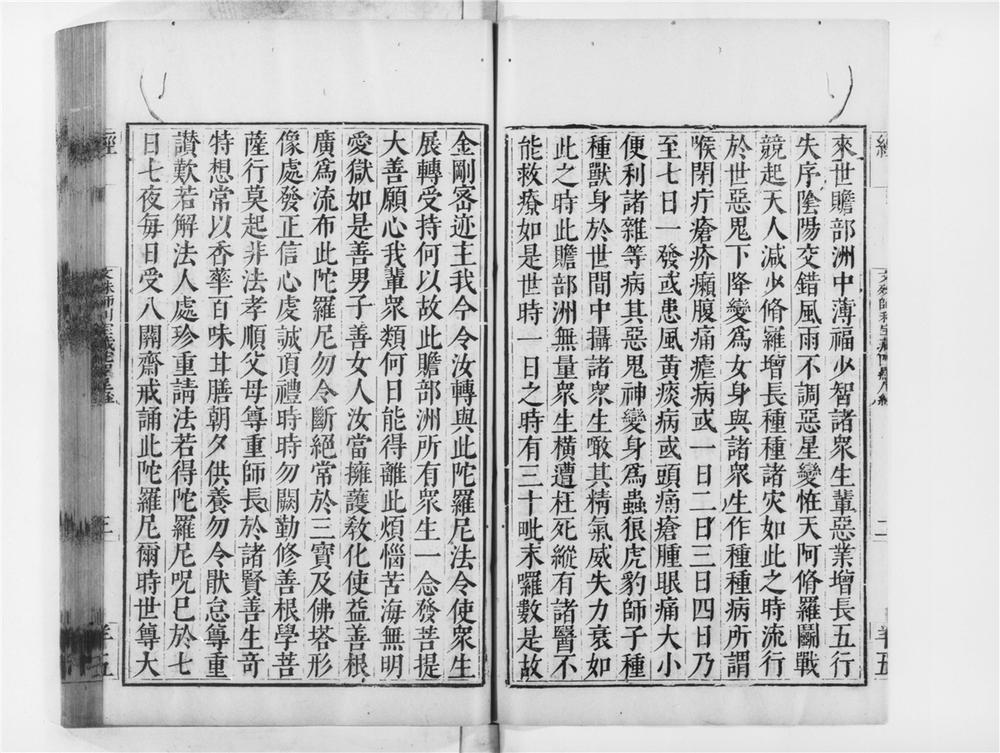 來世贍部洲中薄福少智諸衆生輩惡業增長五行
失序隂陽交錯風雨不調惡星變恠天阿脩羅鬭戰
競起天人減少脩羅增長種種諸灾如此之時流行
於世惡鬼下降變爲女身與諸衆生作種種病所謂
喉閉疔瘡疥癩腹痛瘧病或一日二日三日四日乃
至七日一發或患風黃痰病或頭痛瘡腫眼痛大小
便利諸雜等病其惡鬼神變身爲蟲狼虎豹師子種
種獸身於世間中攝諸衆生噉其精氣威失力衰如
此之時此贍部洲無量衆生橫遭枉死縱有諸醫不
能救療如是世時一日之時有三十毗末囉數是故
金剛宻迹主我今令汝轉與此陀羅尼法令使衆生
展轉受持何以故此贍部洲所有衆生一念發菩提
大善願心我輩衆類何日能得離此煩惱苦海無明
愛獄如是善男子善女人汝當擁護敎化使益善根
廣爲流布此陀羅尼勿令斷絕常於三寶及佛塔形
像處發正信心虔誠頂禮時時勿闕勤修善根學菩
薩行莫起非法孝順父母尊重師長於諸賢善生竒
特想常以香華百味甘膳朝夕供養勿令猒怠尊重
讃歎若解法人處珍重請法若得陀羅尼呪已於七
日七夜每日受八關齋戒誦此陀羅尼爾時世尊大
經
二
羊五
經
三
羊五